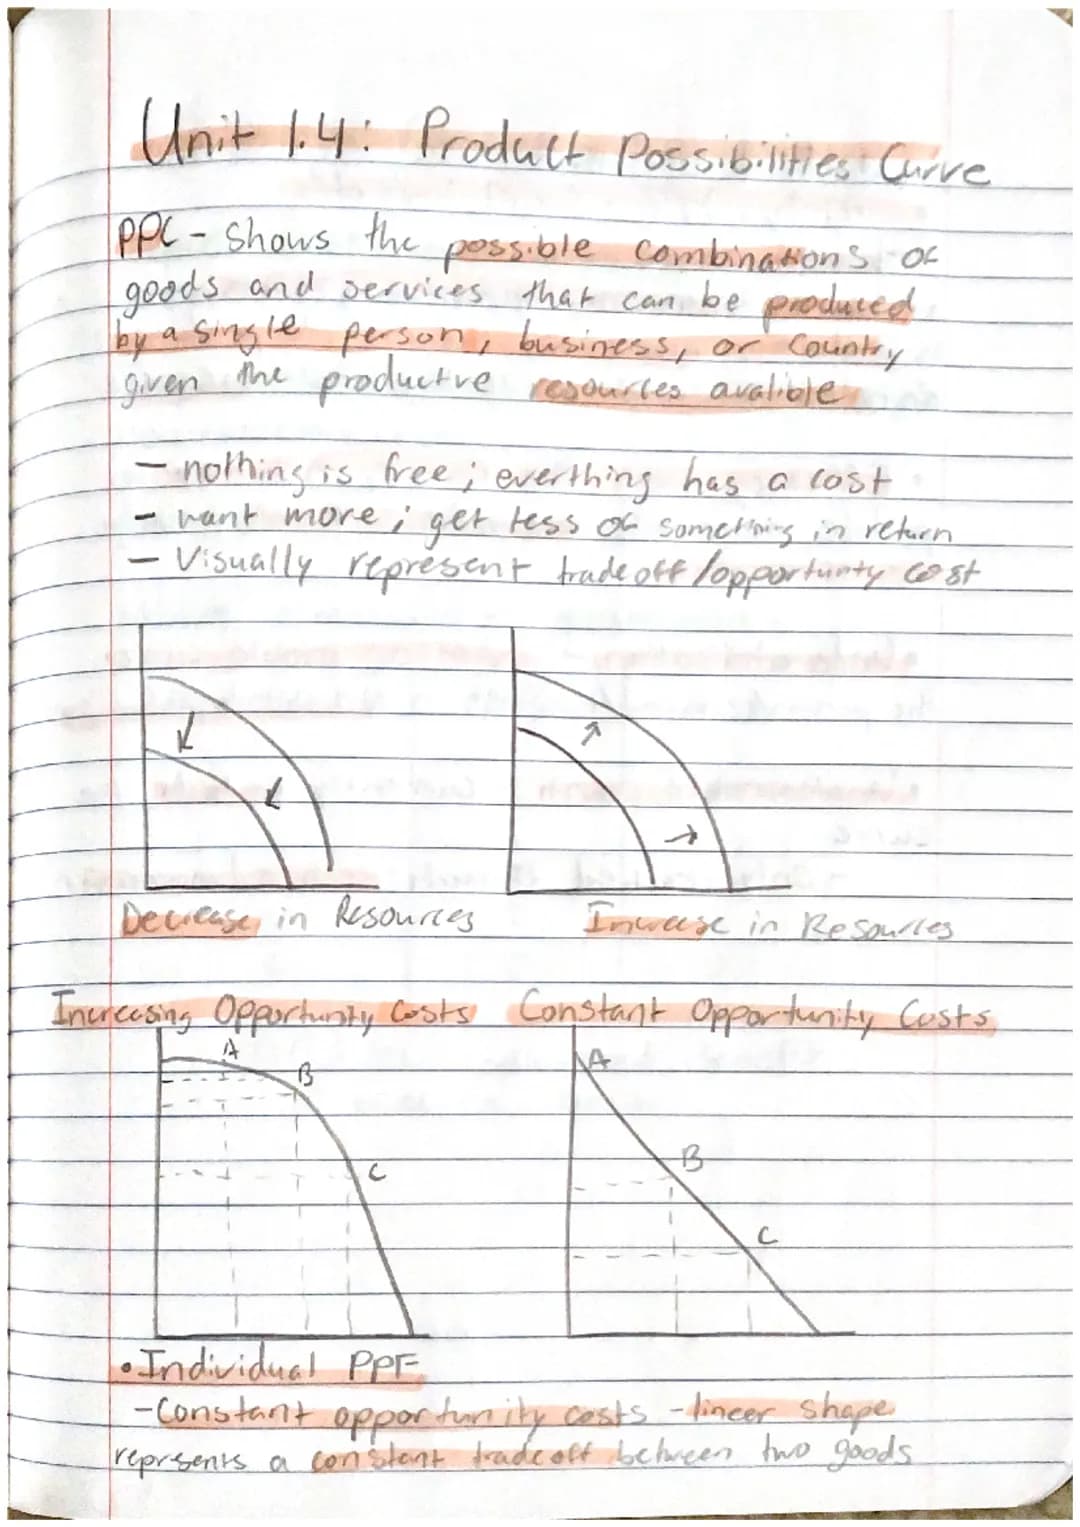 Unit 1.4: Product Possibilities Curve
PPC - shows the possible combinations of
goods and services that can be produced
by a single person, business, or country
given the productve resources avalible
- nothing is free; everthing has a cost
- want more; get less of something in return
- Visually represent tradeoff/opportunty cost
Decrease in Resources
Increase in Resources
Increasing Opportunity Costs
Constant Opportunity Costs
A
B
C
A
B
C
• Individual PPF
- Constant opportunity costs - lineer shape
reprsents a constant tradeoff between two goods